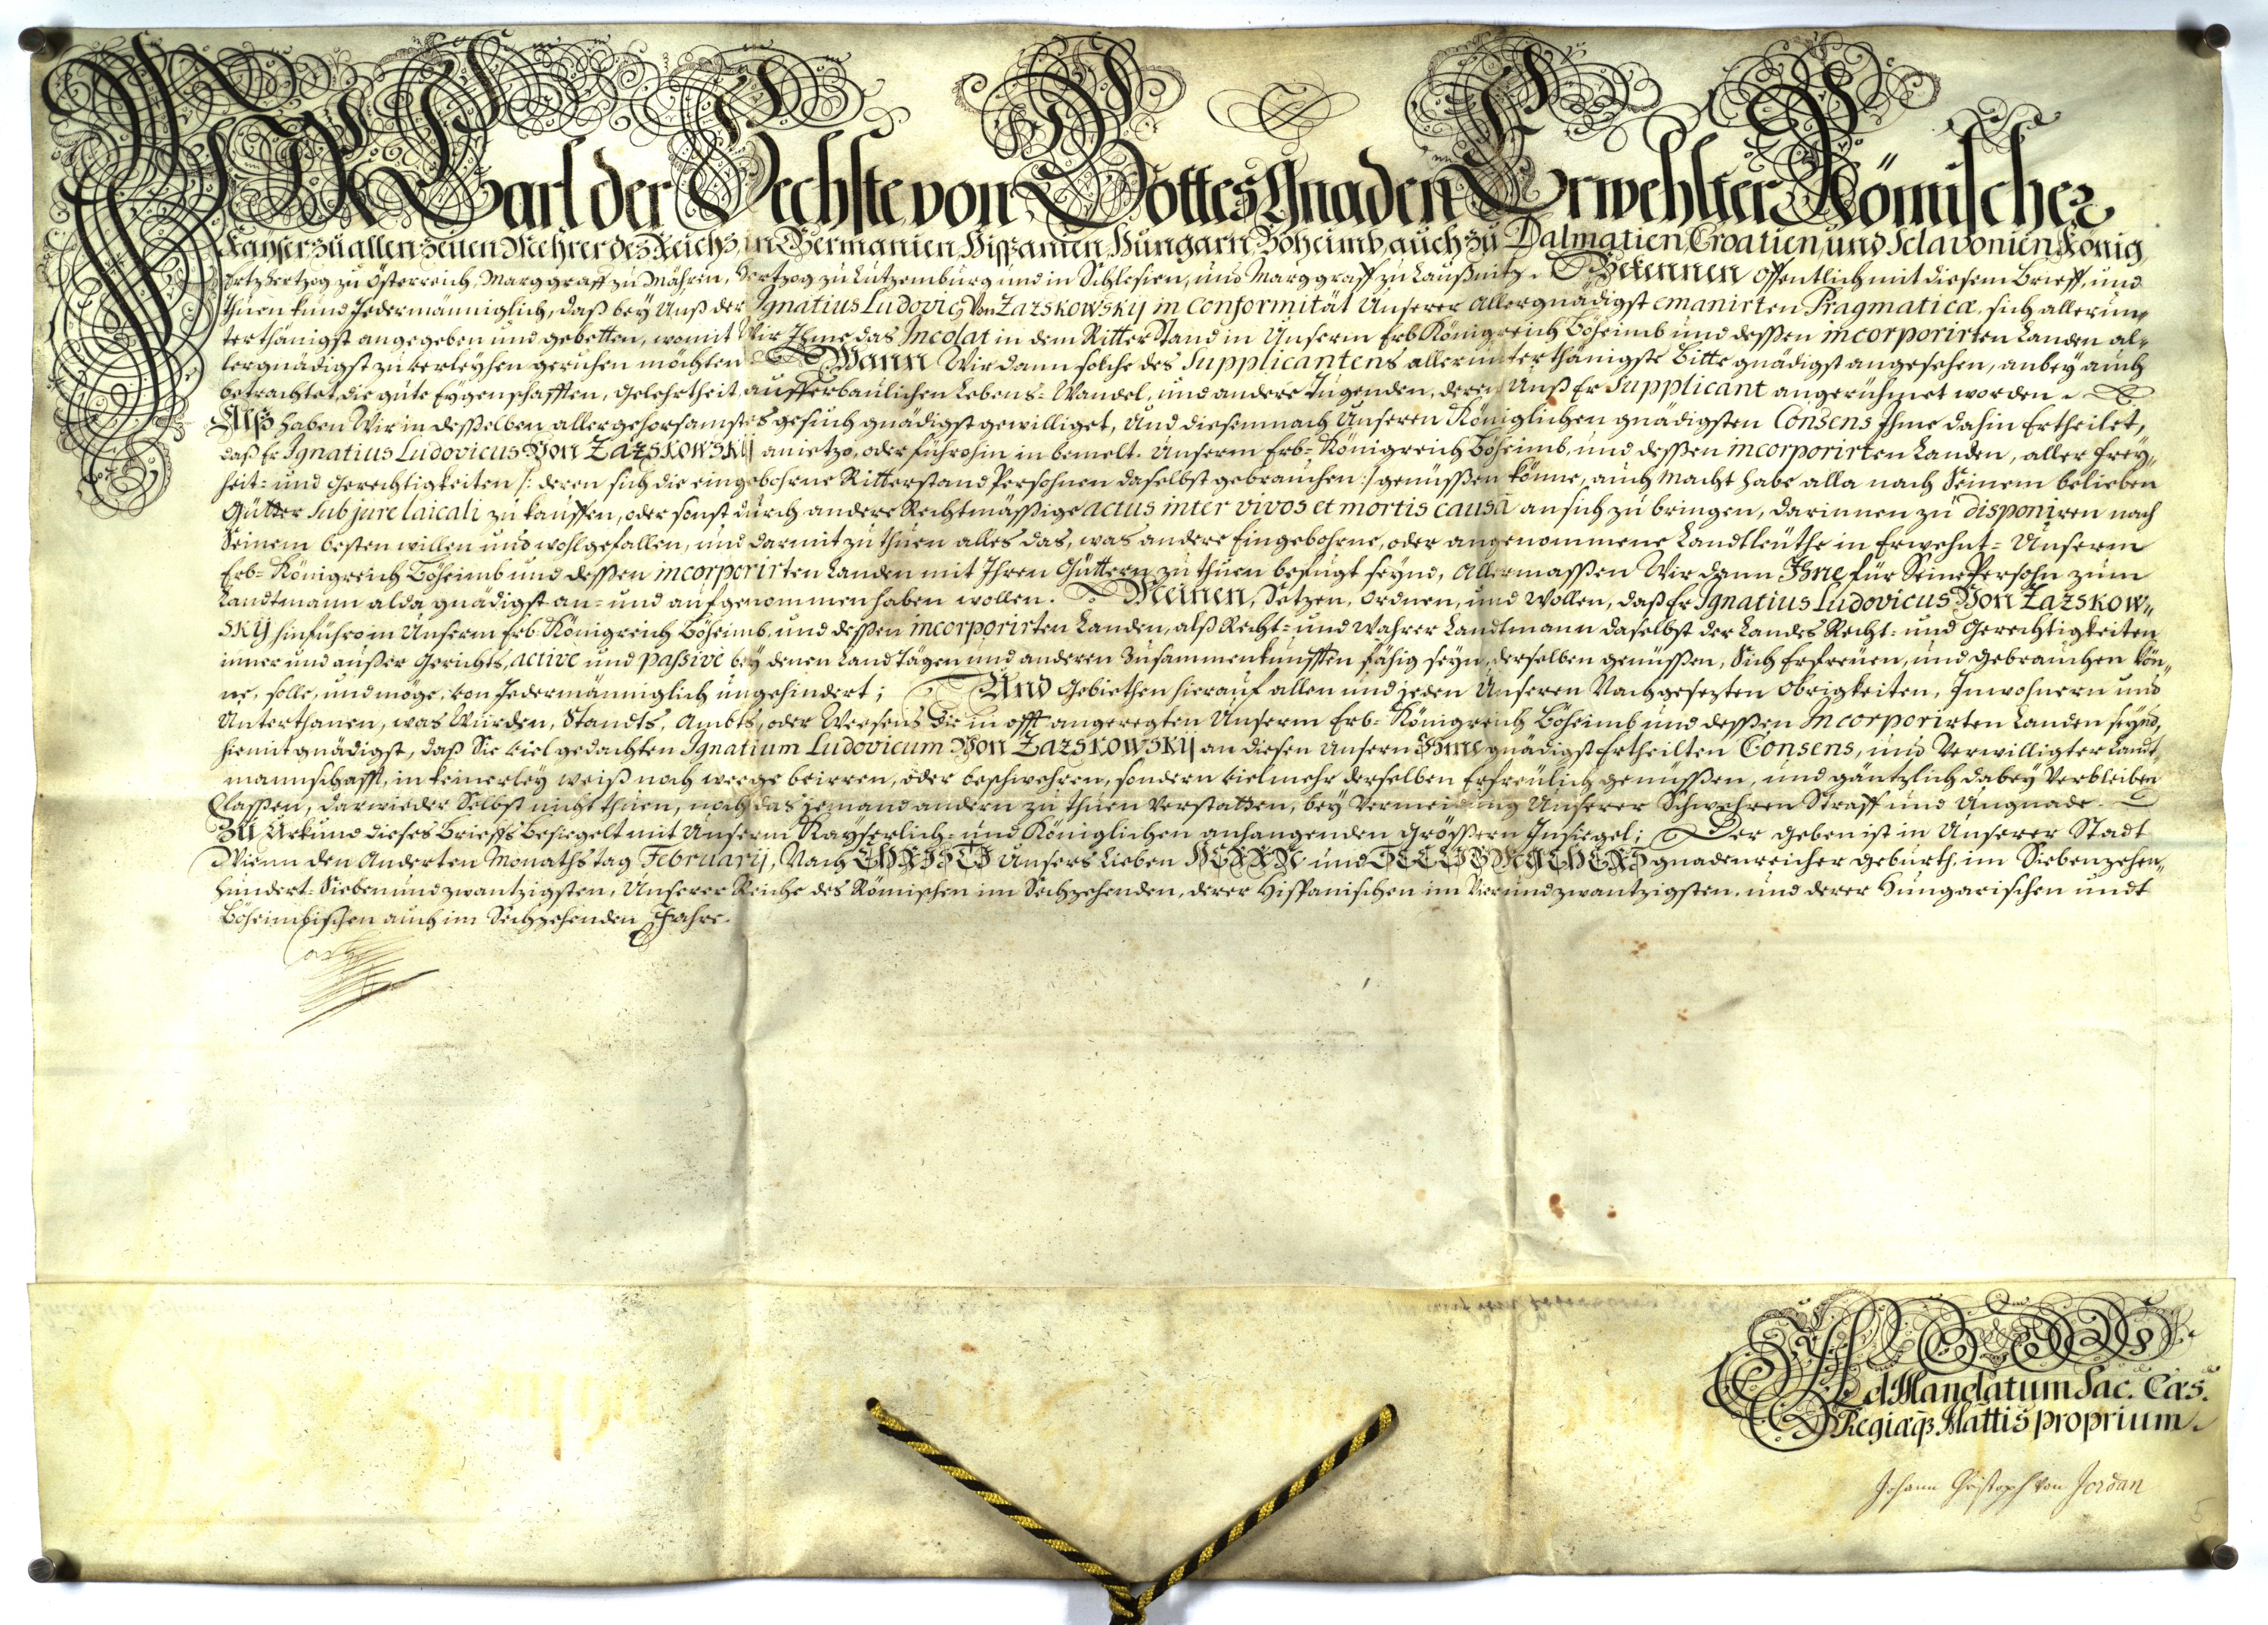 Wir Carl der Sechste von Gottes Gnaden Erwehlter Römischer
Kayser zu allen Zeiten Mehrer des Reichs, in Germanien, Hispanien, Hungarn, Böheimb, auch zu Dalmatien Croatien, und Sclavonien König,
Ertzhertzog zu Österreich, Marggraff zu Mähren, Hertzog zu Lützemburg und in Schlesien, und Marggraff zu Laußnitz. Bekennen offentlich mit diesem Brieff, und
thuen kund Jedermänniglich, daß bey Unß der Ignatius Ludovic9 Von Zażskowskij in Conformität Unserer allergnädigst emanirten Pragmaticæ, sich allerun-
terthänigst angegeben und gebetten, womit Wir Ihme das Incolat in dem Ritter Stand in Unserm Erb Königreich Böheimb und dessen incorporirten Landen al-
lergnädigst zu verleyhen geruhen möchten. Wann Wir dann solche des Supplicantens allerunterthänigste Bitte gnädigst angesehen, anbey auch
betrachtet, die gute Eygenschafften, Gelehrtheit, aufferbaulichen Lebens-Wandel, und andere Tugenden, deren Unß Er Supplicant angerühmet worden.
Alß haben Wir in desselben allergehorsamstes gesuch gnädigst gewilliget, Und diesemnach Unseren Königlichen gnädigsten Consens Ihme dahin Ertheilet,
daß Er Ignatius Ludovicus Von Zażskowskij anietzo, oder führohin in bemelt. Unserm Erb-Königreich Böheimb, und dessen incorporirten Landen, aller Frey-
heit- und Gerechtigkeiten /: deren sich die eingebohrne Ritterstand Persohnen daselbst gebrauchen :/ genüssen könne, auch Macht habe alla nach Seinem belieben
Gütter sub jure laicali zu kauffen, oder sonst durch andere Rechtmässige actus inter vivos et mortis causâ an sich zu bringen, darinnen zu disponiren nach
Seinem besten willen und wohlgefallen, und darmit zu thuen alles das, was andere Eingebohrne, oder angenommene Landtleuthe in Erwehnt-Unserm
Erb-Königreich Böheimb und dessen incorporirten Landen mit Ihren Güttern zu thuen befugt seynd, Allermassen Wir dann Ihne für Seine Persohn zum
Landtmann alda gnädigst an- und aufgenommen haben wollen. Meinen, Setzen, Ordnen, und Wollen, daß Er Ignatius Ludovicus Von Zażskow-
skij hinführo in Unserm Erb-Königreich Böheimb, und dessen incorporirten Landen, alß Recht- und Wahrer Landtmann daselbst der Landes Recht- und Gerechtigkeiten
inner und ausser Gerichts, active und passivè bey denen Land Tägen und anderen Zusammenkunfften fähig seyn, derselben genüssen, Sich Erfreuen, und gebrauchen kön-
ne, solle, und möge, von Jedermänniglich ungehindert; Und Gebiethen hierauf allen und jeden Unseren Nachgesezten Obrigkeiten, Inwohnern und
Unterthanen, was Würden, Standts, Ambts, oder Weesens die in offt angeregten Unserm Erb-Königreich Böheimb und dessen Incorporirten Landen seynd,
hiemit gnädigst, daß Sie viel gedachten Ignatium Ludovicum Von Zażskowskij an diesen Unsern Ihme gnädigst Ertheilten Consens, und Verwilligter Landt-
mannschafft, in keinerley weiß noch weege beirren, oder beschwehren, sondern vielmehr derselben Erfreulich genüssen, und gäntzlich dabey Verbleiben
lassen, darwieder Selbst nicht thuen, noch das jemand andern zu thuen Verstatten, bey Vermeidung Unserer Schwehren Straff und Ungnade.
Zu Urkund dieses Brieffs besiegelt mit Unserm Kayserlich- und Königlichen anhangenden Grössern Insiegel; Der geben ist in Unserer Stadt
Wienn den Anderten Monathstag Februarij, Nach CHRISTI Unsers Lieben HERRN und SEELIGMACHERS gnadenreicher Geburth, im Siebenzehen-
hundert-Siebenundzwantzigsten, Unserer Reiche des Römischen im Sechzehenden, derer Hispanischen im Vierundzwantzigsten, und derer Hungarischen undt
Böheimbischen auch im Sechzehenden Jahre.
Carl
Ad Mandatum Sac. Cæs.
Regiæq3 Mattis proprium.
Johann Christoph von Jordan